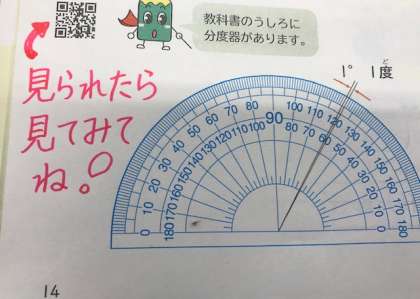 教科書のうしろに
分度器があります。
見られたら
見てみて
ね!
1° 1度
ど
0 10 20 30 40 50 60 70 80 90 100 110 120 130 140 150 160 170 180
180 170 160 150 140 130 120 110 100 80 70 60 50 40 30 20 10 0
14